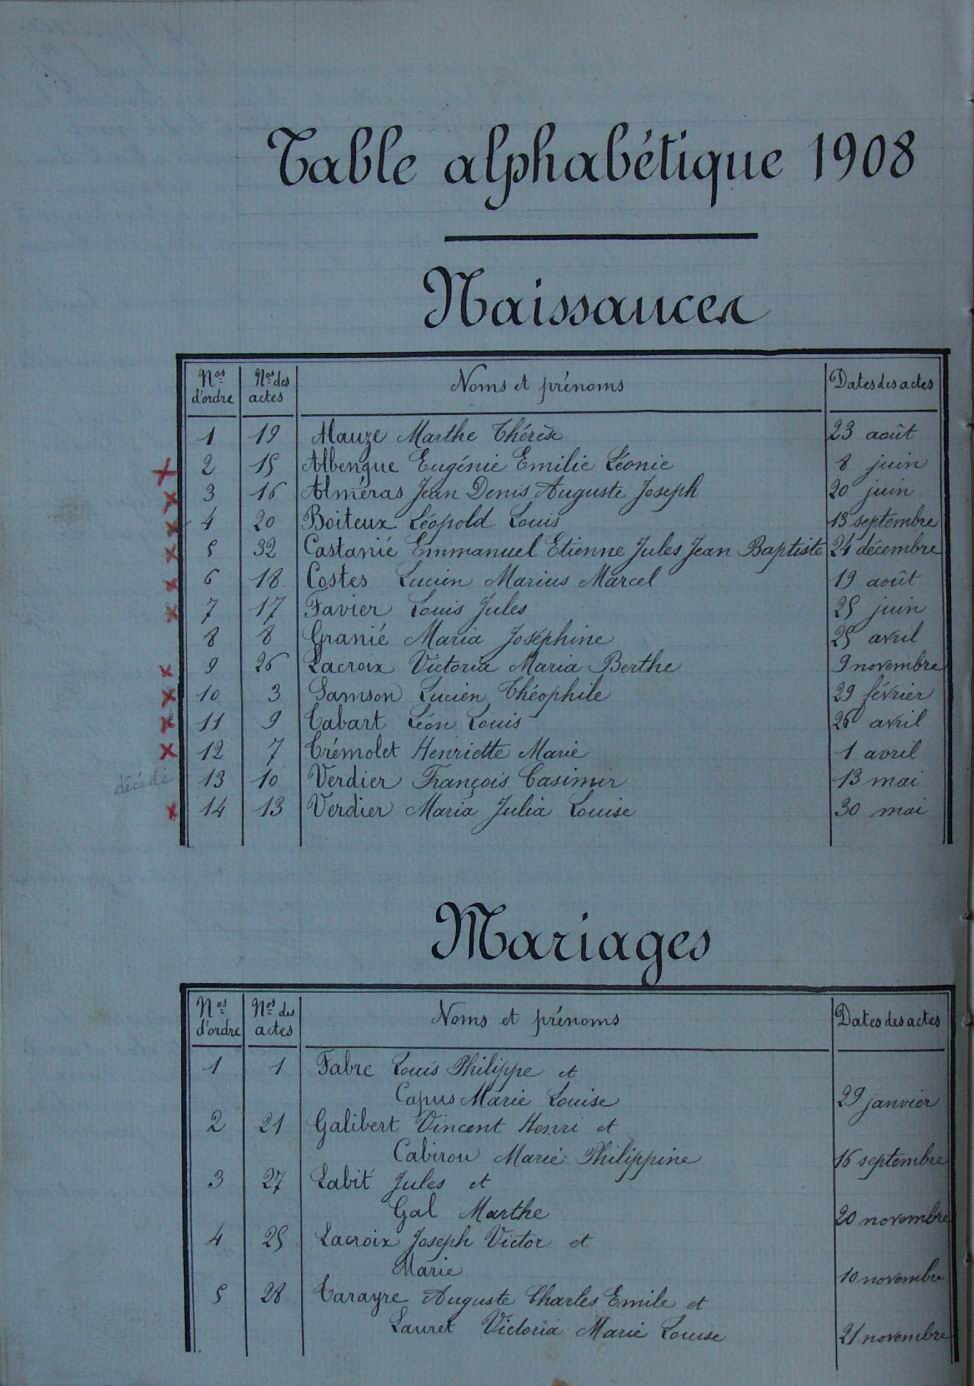 Table alphabétique 1908
Naissances
Nos d'ordre Nos des actes Noms et prénoms Dates des actes
1 19 Mauze Marthe Thérèse 23 août
2 15 Albengue Eugénie Emilie Léonie 8 juin
3 16 Alméras Jean Denis Auguste Joseph 20 juin
4 20 Boiteux Léopold Louis 13 septembre
5 32 Castanié Emmanuel Etienne Jules Jean Baptiste 24 décembre
6 18 Costes Lucien Marius Marcel 19 août
7 17 Favier Louis Jules 25 juin
8 8 Granié Maria Joséphine 25 avril
9 26 Lacroix Victoria Maria Berthe 9 novembre
10 3 Samson Lucien Théophile 29 février
11 9 Tabart Léon Louis 26 avril
12 7 Trémolet Henriette Marie 1 avril
décédé 13 10 Verdier François Casimir 13 mai
14 13 Verdier Maria Julia Louise 30 mai
Mariages
Nos d'ordre Nos des actes Noms et prénoms Dates des actes
1 1 Fabre Louis Philippe et
Capus Marie Louise 29 janvier
2 21 Galibert Vincent Henri et
Cabirou Marie Philippine 16 septembre
3 27 Labit Jules et
Gal Marthe 20 novembre
4 25 Lacroix Joseph Victor et
Marie 10 novembre
5 28 Tarayre Auguste Charles Emile et
Lauret Victoria Marie Louise 21 novembre